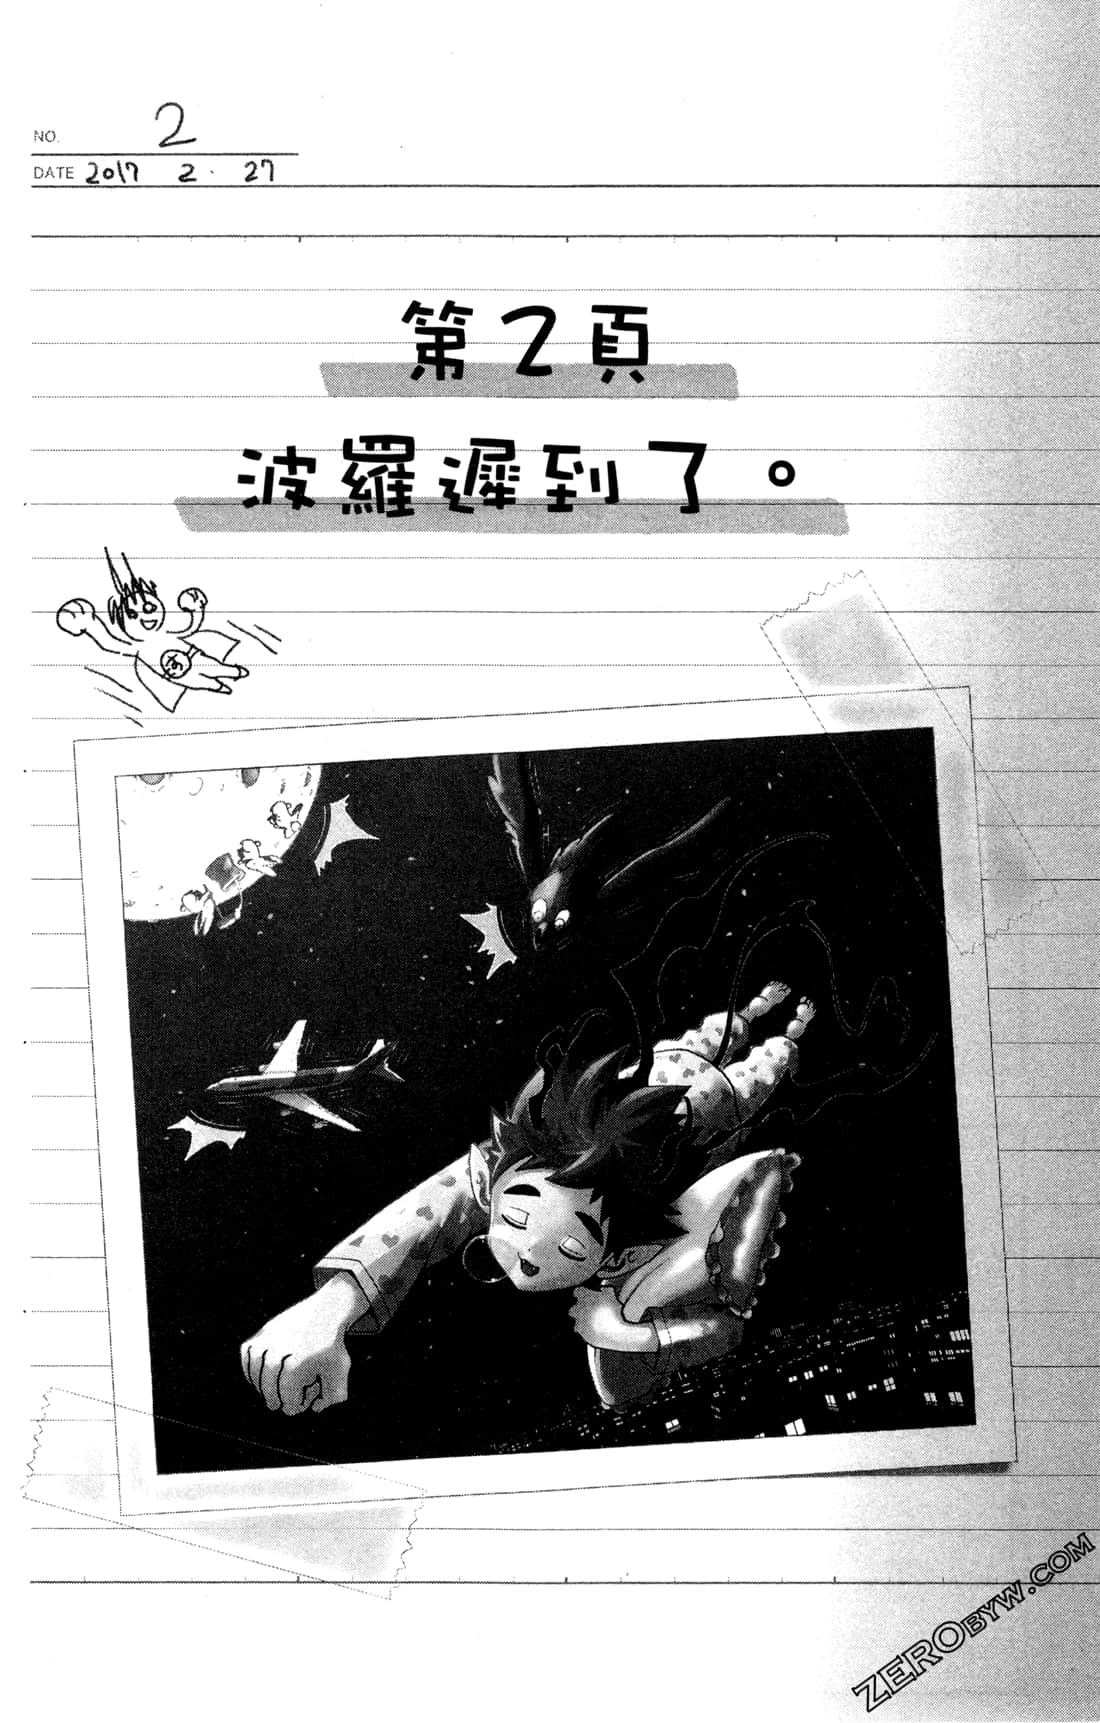 NO. 2
DATE 2017 2. 27
第2頁
波羅遲到了。
あ
ZEROBYW.COM